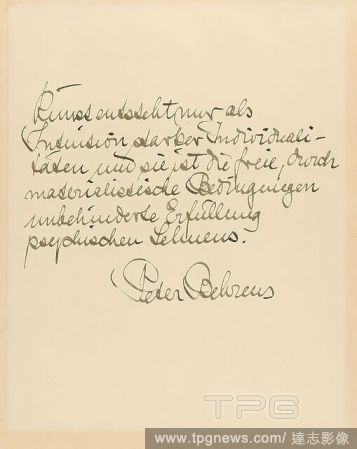 Kunst entsteht nur als
Intuision starker Individuali-
täten und sie ist die freie, durch
materialistische Bedingungen
unbehinderte Erfüllung
psychischen Sehnens.
Peter Behrens
TPG
www.tpgnews.com/ 達志影像